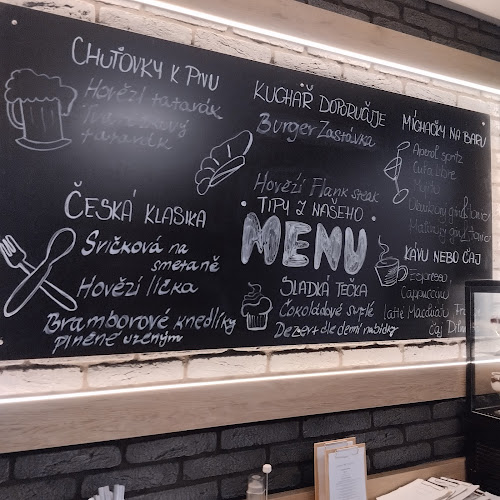 CHUŤOVKY K PIVU
Hovězí tatarák
tatarák
KUCHAŘ DOPORUČUJE
Burger Zastávka
Hovězí Flank steak
MÍCHAČKY NA BARU
Aperol spritz
Cuba libre
Mojito
gin & tonic
Malinový gin & tonic
ČESKÁ KLASIKA
Svíčková na
smetaně
Hovězí líčka
Bramborové knedlíky
plněné uzeným
TIPY Z NAŠEHO
MENU
SLADKÁ TEČKA
Čokoládové suflé
Dezert dle denní nabídky
KÁVU NEBO ČAJ
Espresso
Cappuccino
Latté Macchiato
čaj